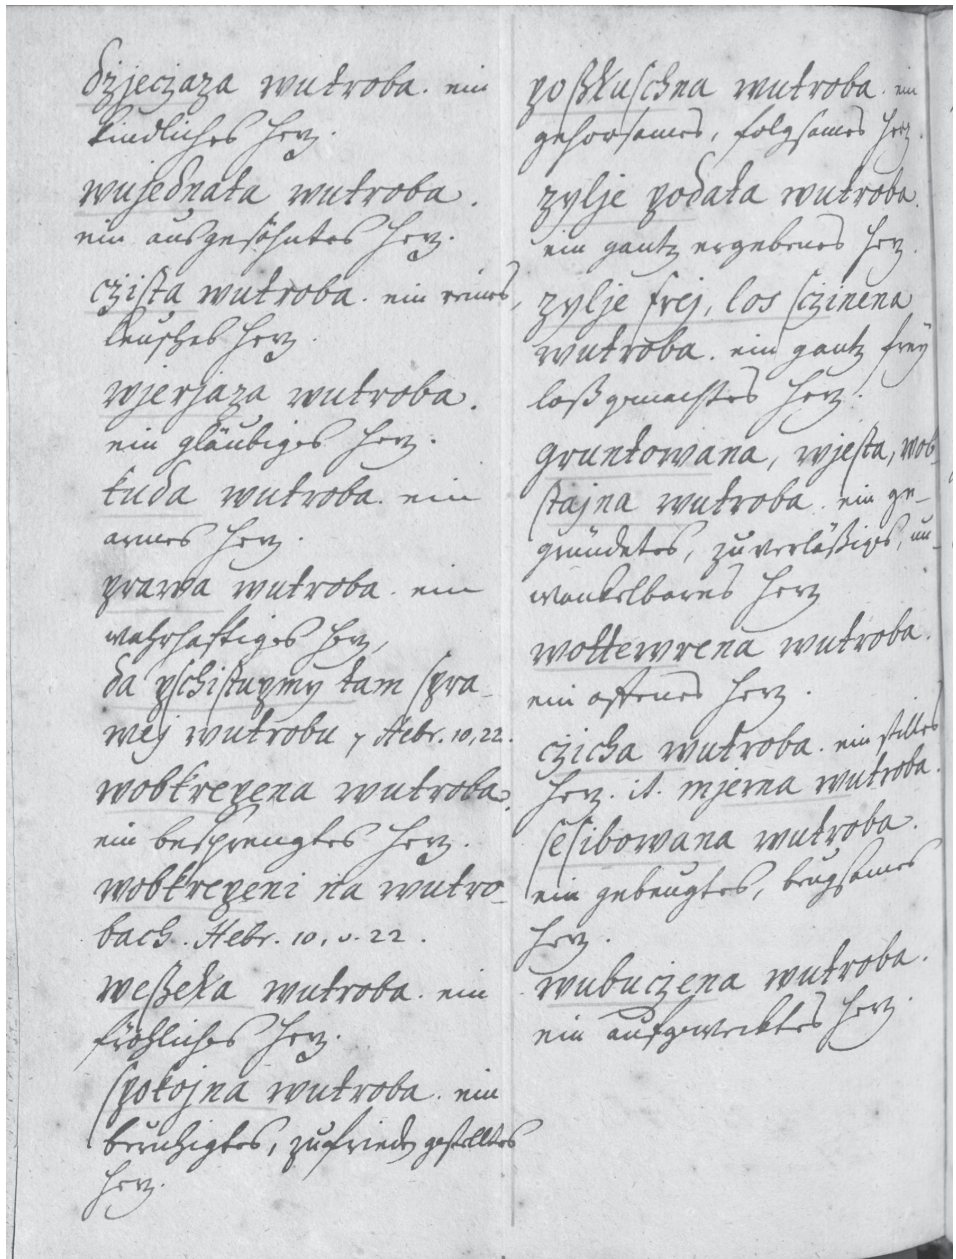 dzjeczaza wutroba. ein
kindliches Hertz.
wujednata wutroba.
ein ausgesöhntes Hertz.
czista wutroba. ein reines,
keusches Hertz.
wjerjaza wutroba.
ein gläubiges Hertz.
kuda wutroba. ein
armes Hertz.
prawa wutroba. ein
wahrhafftiges Hertz,
da pschistupmy tam spra-
wej wutrobu, Hebr. 10, 22.
wobkrepena wutroba.
ein besprengtes Hertz.
wobkrepeni na wutro-
bach. Hebr. 10. v. 22.
weßeła wutroba. ein
fröhliches Hertz.
spokojna wutroba. ein
beruhigtes, zufrieden gestelltes
Hertz.
poßłuschna wutroba. ein
gehorsames, folgsames Hertz.
zylje podata wutroba.
ein gantz ergebenes Hertz.
zylje frej, los sczinena
wutroba. ein gantz frey
loßgemachtes Hertz.
gruntowana, wjesta, wob-
stajna wutroba. ein ge-
gründetes, zuverläßiges, un-
wankelbares Hertz
wottewrena wutroba.
ein offenes Hertz.
czicha wutroba. ein stilles
Hertz. it. mjerna wutroba.
sesibowana wutroba.
ein gebeugtes, beugsames
Hertz.
wubuczena wutroba.
ein aufgewecktes Hertz.